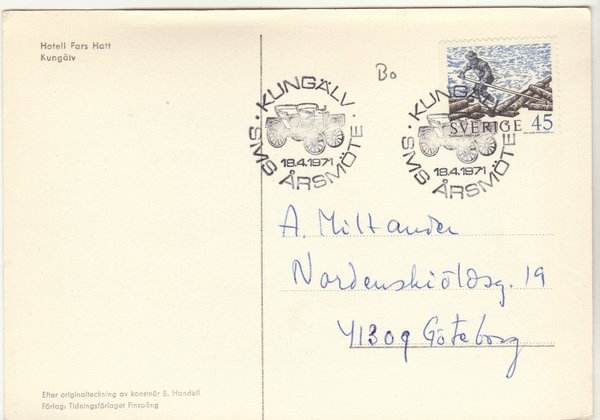 Hotell Fars Hatt
Kungälv
Bo
SVERIGE 45
KUNGÄLV · SMS ÅRSMÖTE ·
18.4.1971
KUNGÄLV · SMS ÅRSMÖTE ·
18.4.1971
A. Miltander
Nordenskiöldsg. 19
41309 Göteborg
Efter originalteckning av konstnär B. Handell
Förlag: Tidningsförlaget Finspång